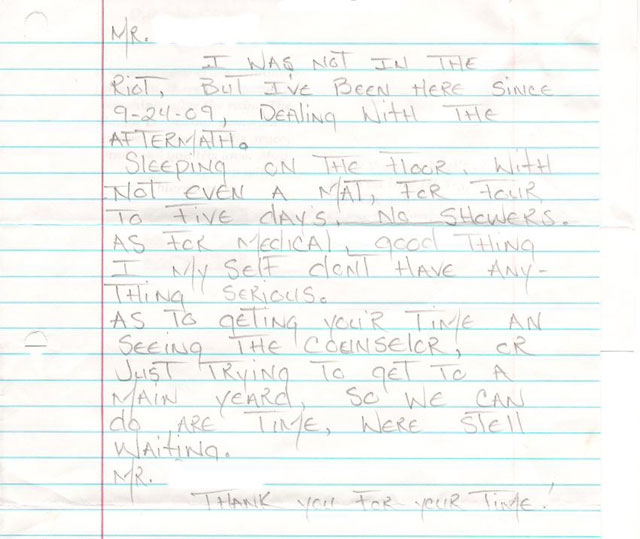 MR.
I WAS NOT IN THE
RIOT, BUT I'VE BEEN HERE SINCE
9-24-09, DEALING WITH THE
AFTERMATH.
SLEEPING ON THE FLOOR. WITH
NOT EVEN A MAT, FOR FOUR
TO FIVE DAY'S. NO SHOWERS.
AS FOR MEDICAL, GOOD THING
I MY SELF DON'T HAVE ANY-
THING SERIOUS.
AS TO GETING YOU'R TIME AN
SEEING THE COUNSELOR, OR
JUST TRYING TO GET TO A
MAIN YEARD, SO WE CAN
DO ARE TIME, WERE STELL
WAITING.
MR.
THANK YOU FOR YOUR TIME!